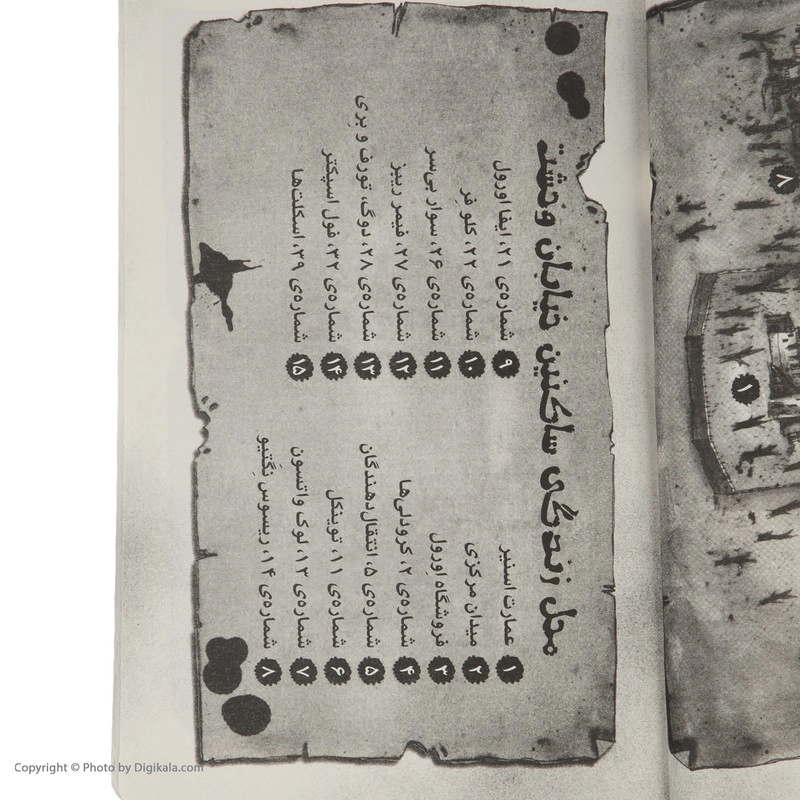 محل زندگی ساکنین خیابان وحشت
۱ عمارت اسنیر
۲ میدان مرکزی
۳ فروشگاه اِورول
۴ شماره‌ی ۲، کرودلی‌ها
۵ شماره‌ی ۵، انتقال‌دهندگان
۶ شماره‌ی ۱۱، توینکل
۷ شماره‌ی ۱۳، لوک واتسون
۸ شماره‌ی ۱۴، ریسوس نِگَتیو
۹ شماره‌ی ۲۱، ایفا اورول
۱۰ شماره‌ی ۲۲، کلو فِر
۱۱ شماره‌ی ۲۶، سوار بی‌سر
۱۲ شماره‌ی ۲۷، فیمر ریبز
۱۳ شماره‌ی ۲۸، دوگ، تورف و بِری
۱۴ شماره‌ی ۳۲، فول اسپکتر
۱۵ شماره‌ی ۳۹، اسکلت‌ها
۸
۱
Copyright © Photo by Digikala.com